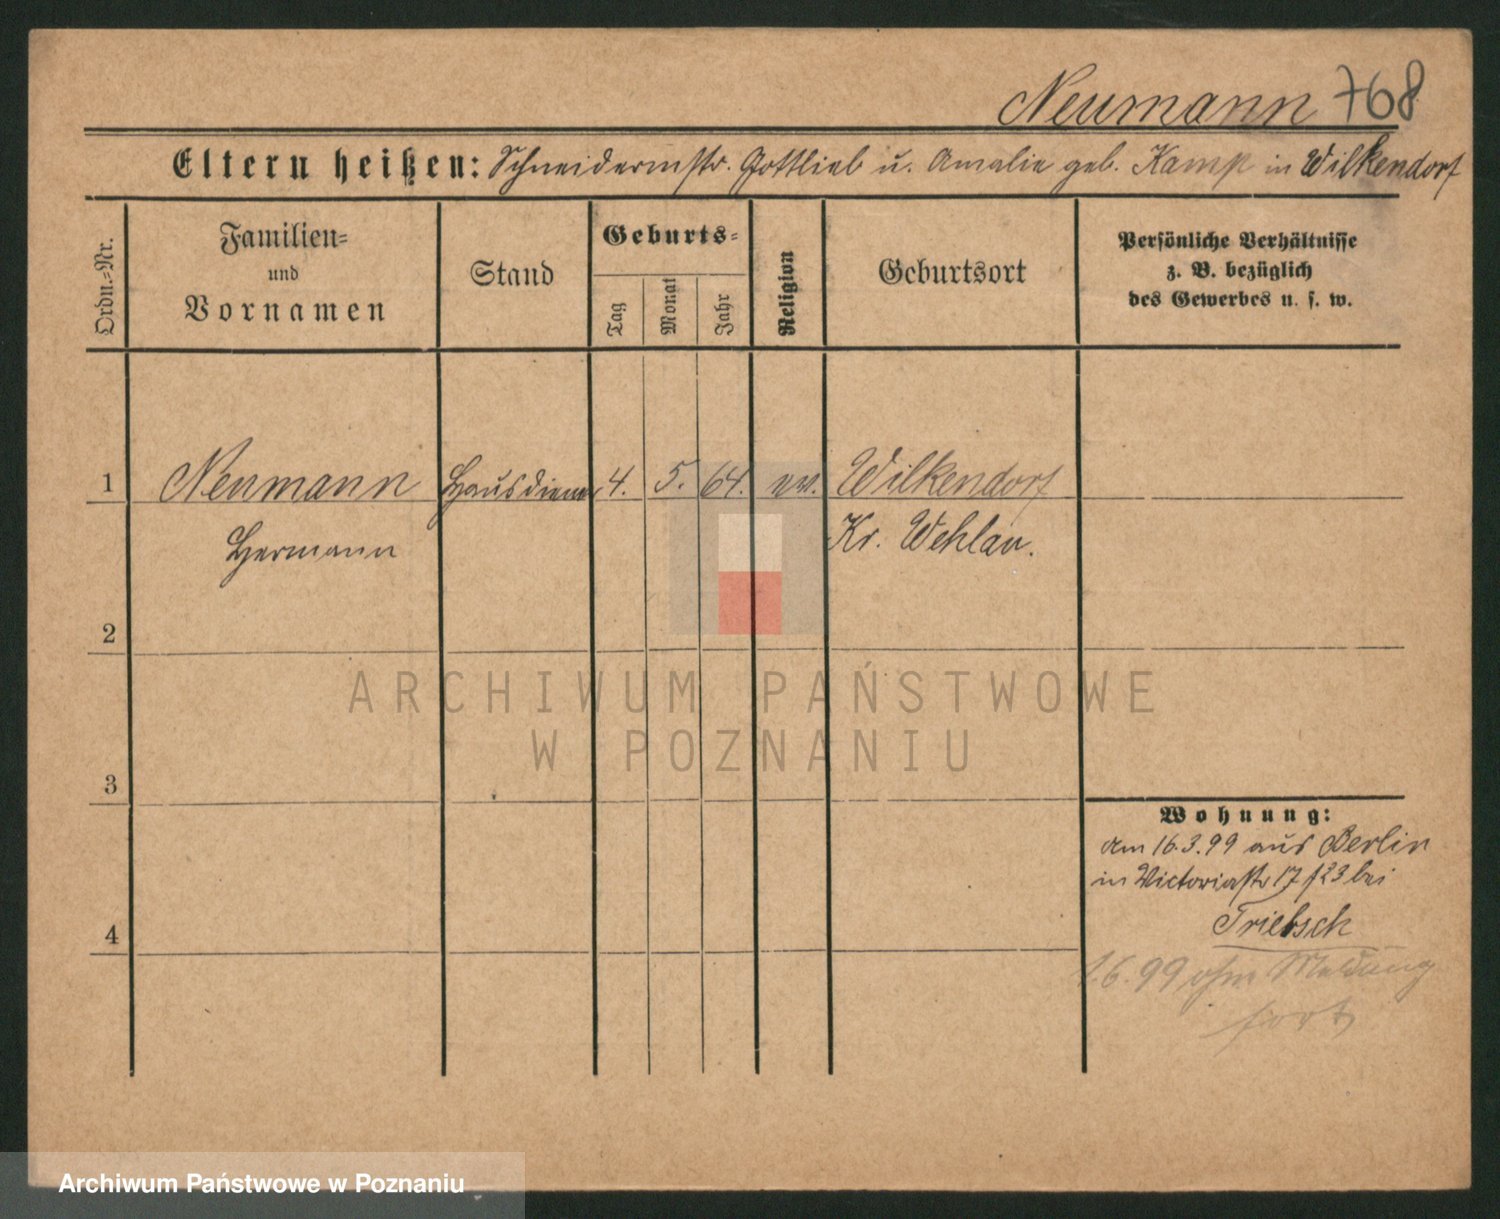 Neumann 768
Eltern heißen: Schneidermstr. Gottlieb u. Amalie geb. Kamp in Wilkendorf
Ordn.=Nr.
Familien=
und
Vornamen
Stand
Geburts=
Tag
Monat
Jahr
Religion
Geburtsort
Persönliche Verhältnisse
z. B. bezüglich
des Gewerbes u. s. w.
1 Neumann Hausdiener 4. 5. 64. ev. Wilkendorf
Hermann Kr. Wehlau.
2
3
4
Wohnung:
am 16.3.99 aus Berlin
in Victoriastr 17 /23 bei
Triebsch
1.6.99 ohne Meldung
fort
ARCHIWUM PAŃSTWOWE
W POZNANIU
Archiwum Państwowe w Poznaniu